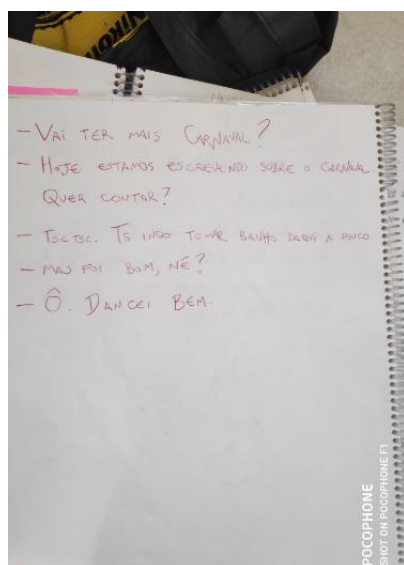 - VAI TER MAIS CARNAVAL?
- HOJE ESTAMOS ESCREVENDO SOBRE O CARNAVAL.
QUER CONTAR?
- TSC TSC. TÔ INDO TOMAR BANHO DAQUI A POUCO.
- MAS FOI BOM, NÉ?
- Ô. DANCEI BEM.
POCOPHONE
SHOT ON POCOPHONE F1